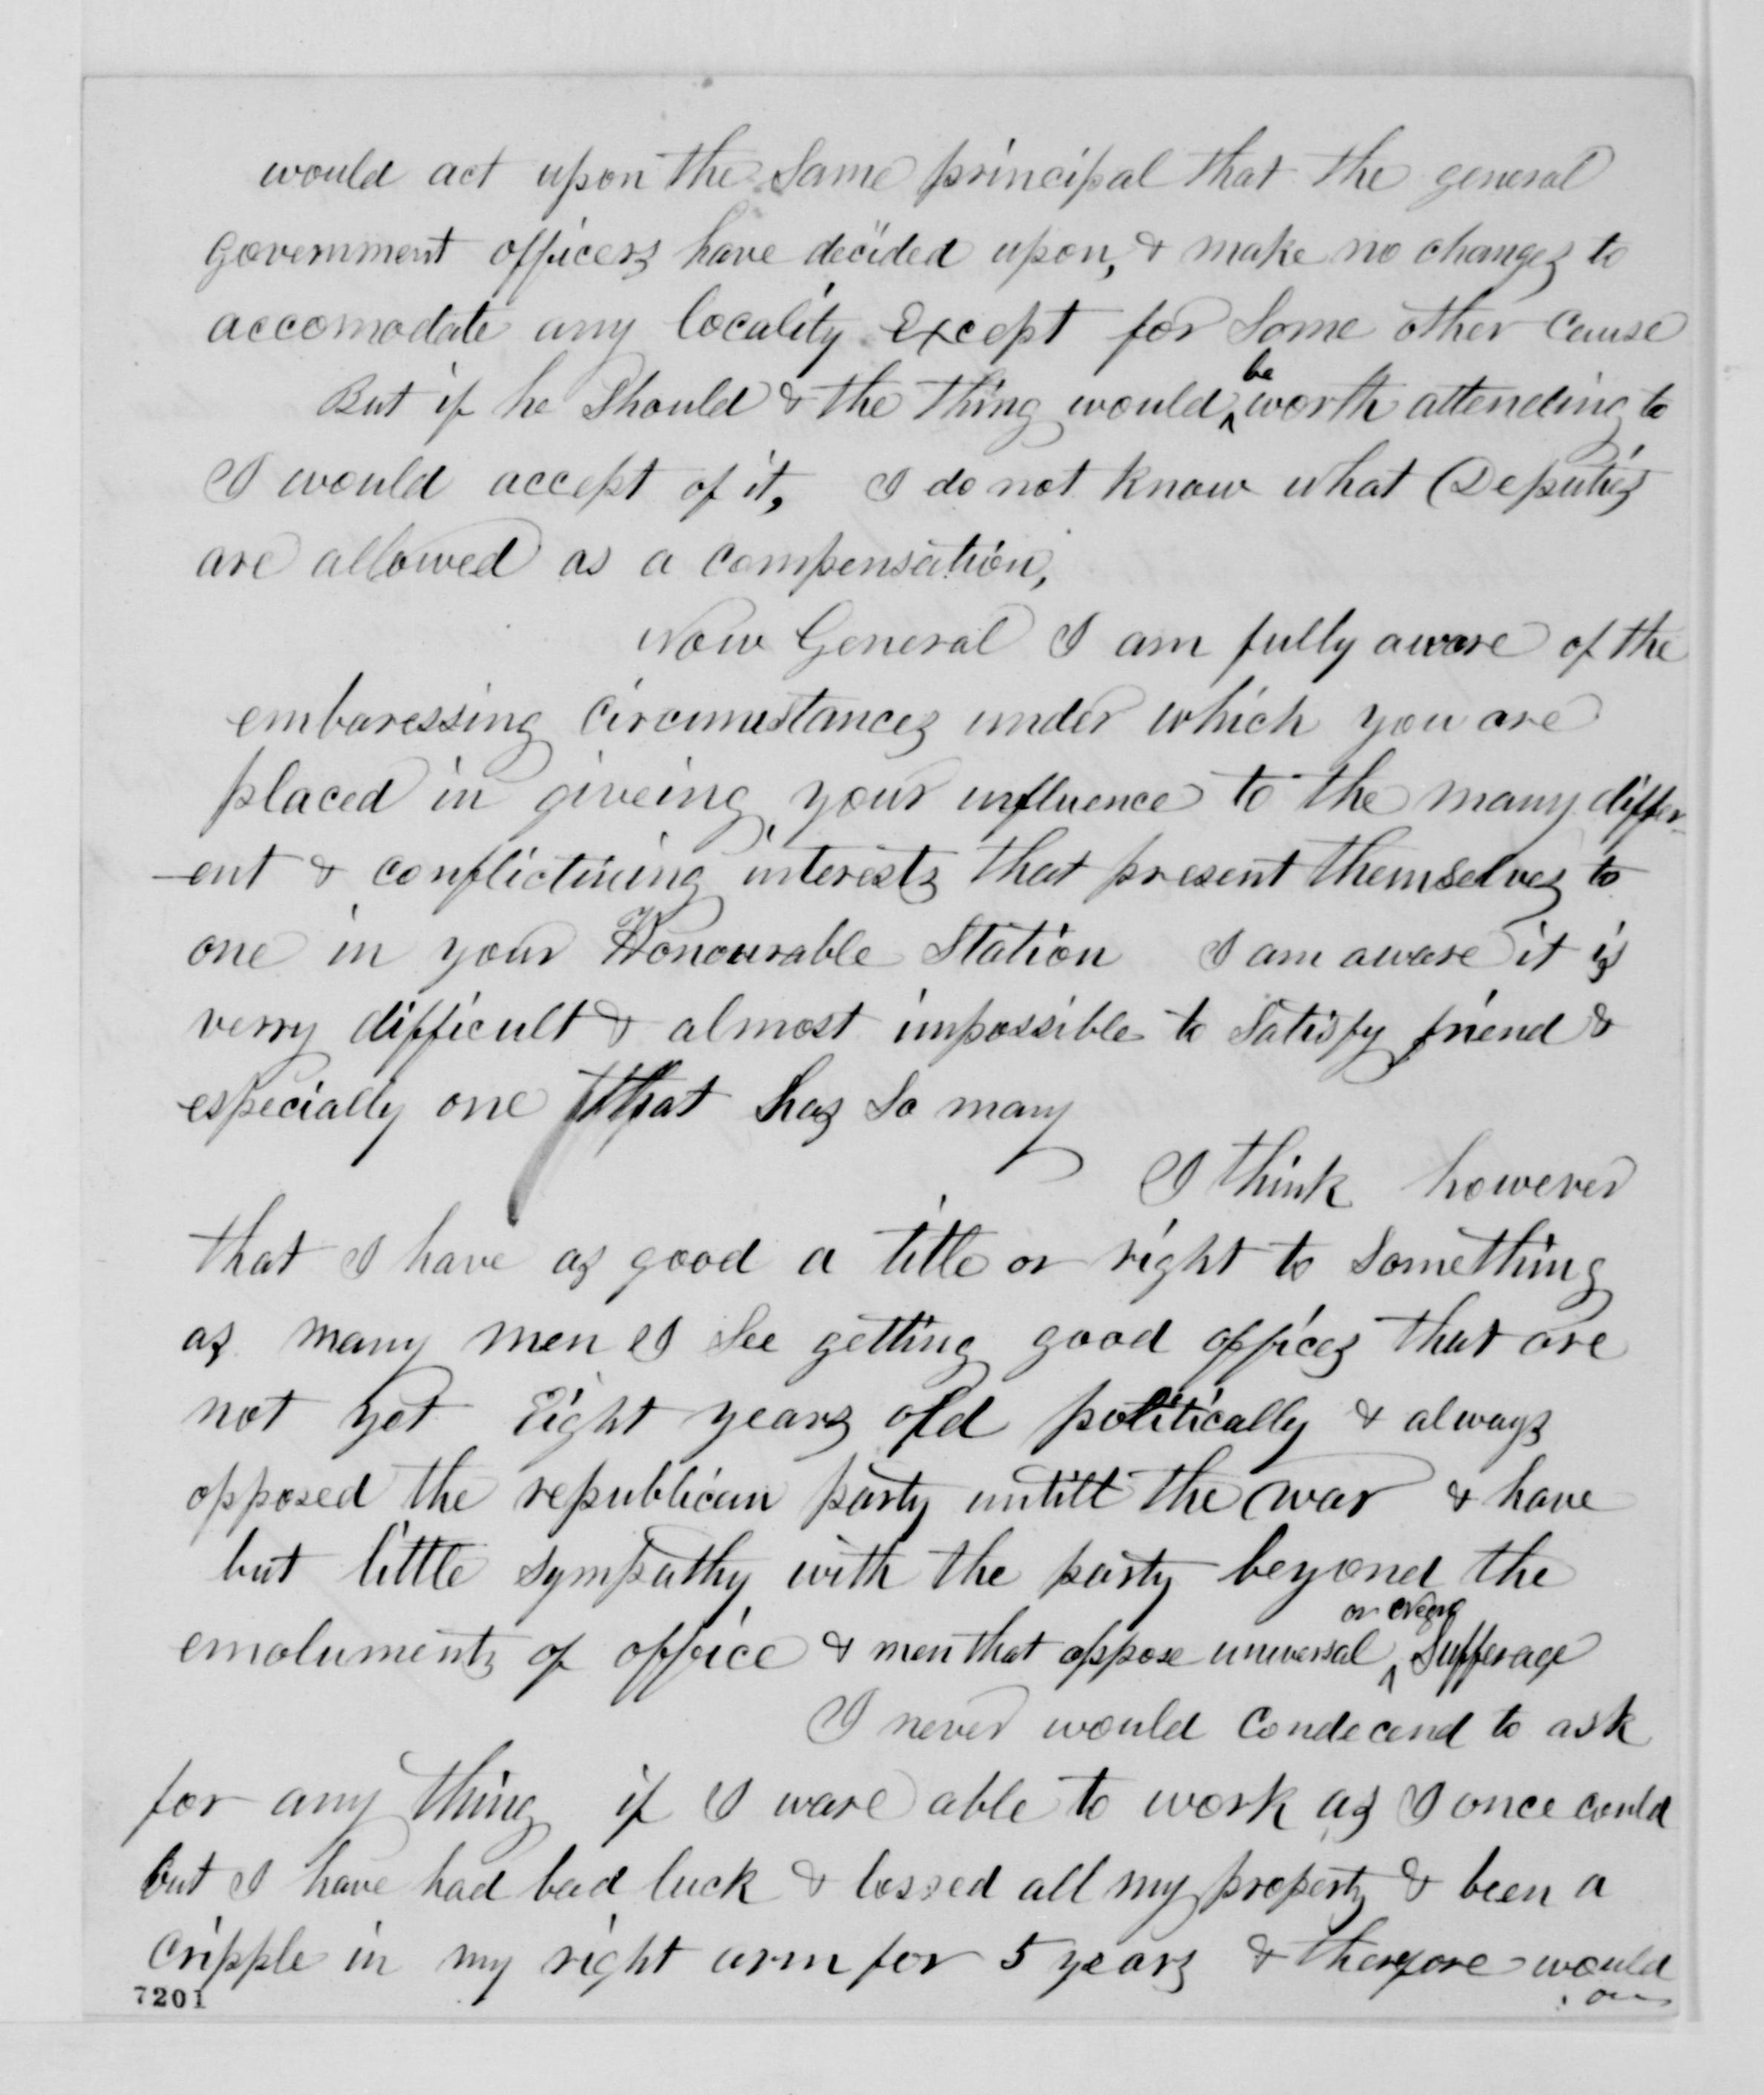 would act upon the Same principal that the general
Government officers have decided upon, & make no changes to
accomodate any locality Except for Some other Cause
But if he Should & the thing would ^be worth attending to
I would accept of it, I do not know what Deputies
are allowed as a compensation,
Now General I am fully aware of the
embaressing Circumstances under which you are
placed in giveing your influence to the many differ-
-ent & conflictining interests that present themselves to
one in your Honourable Station I am aware it is
verry difficult & almost impossible to Satisfy friend &
especially one that has So many
I think however
that I have as good a title or right to Something
as many men I See getting good offices that are
not yet Eight years old politically & always
opposed the republican party untill the war & have
but little sympathy with the party beyond the
emoluments of office & men that oppose universal ^or Negro Sufferage
I never would Condecend to ask
for any thing if I ware able to work as I once could
but I have had bad luck & lossed all my property & been a
Cripple in my right arm for 5 years & therefore would
7201